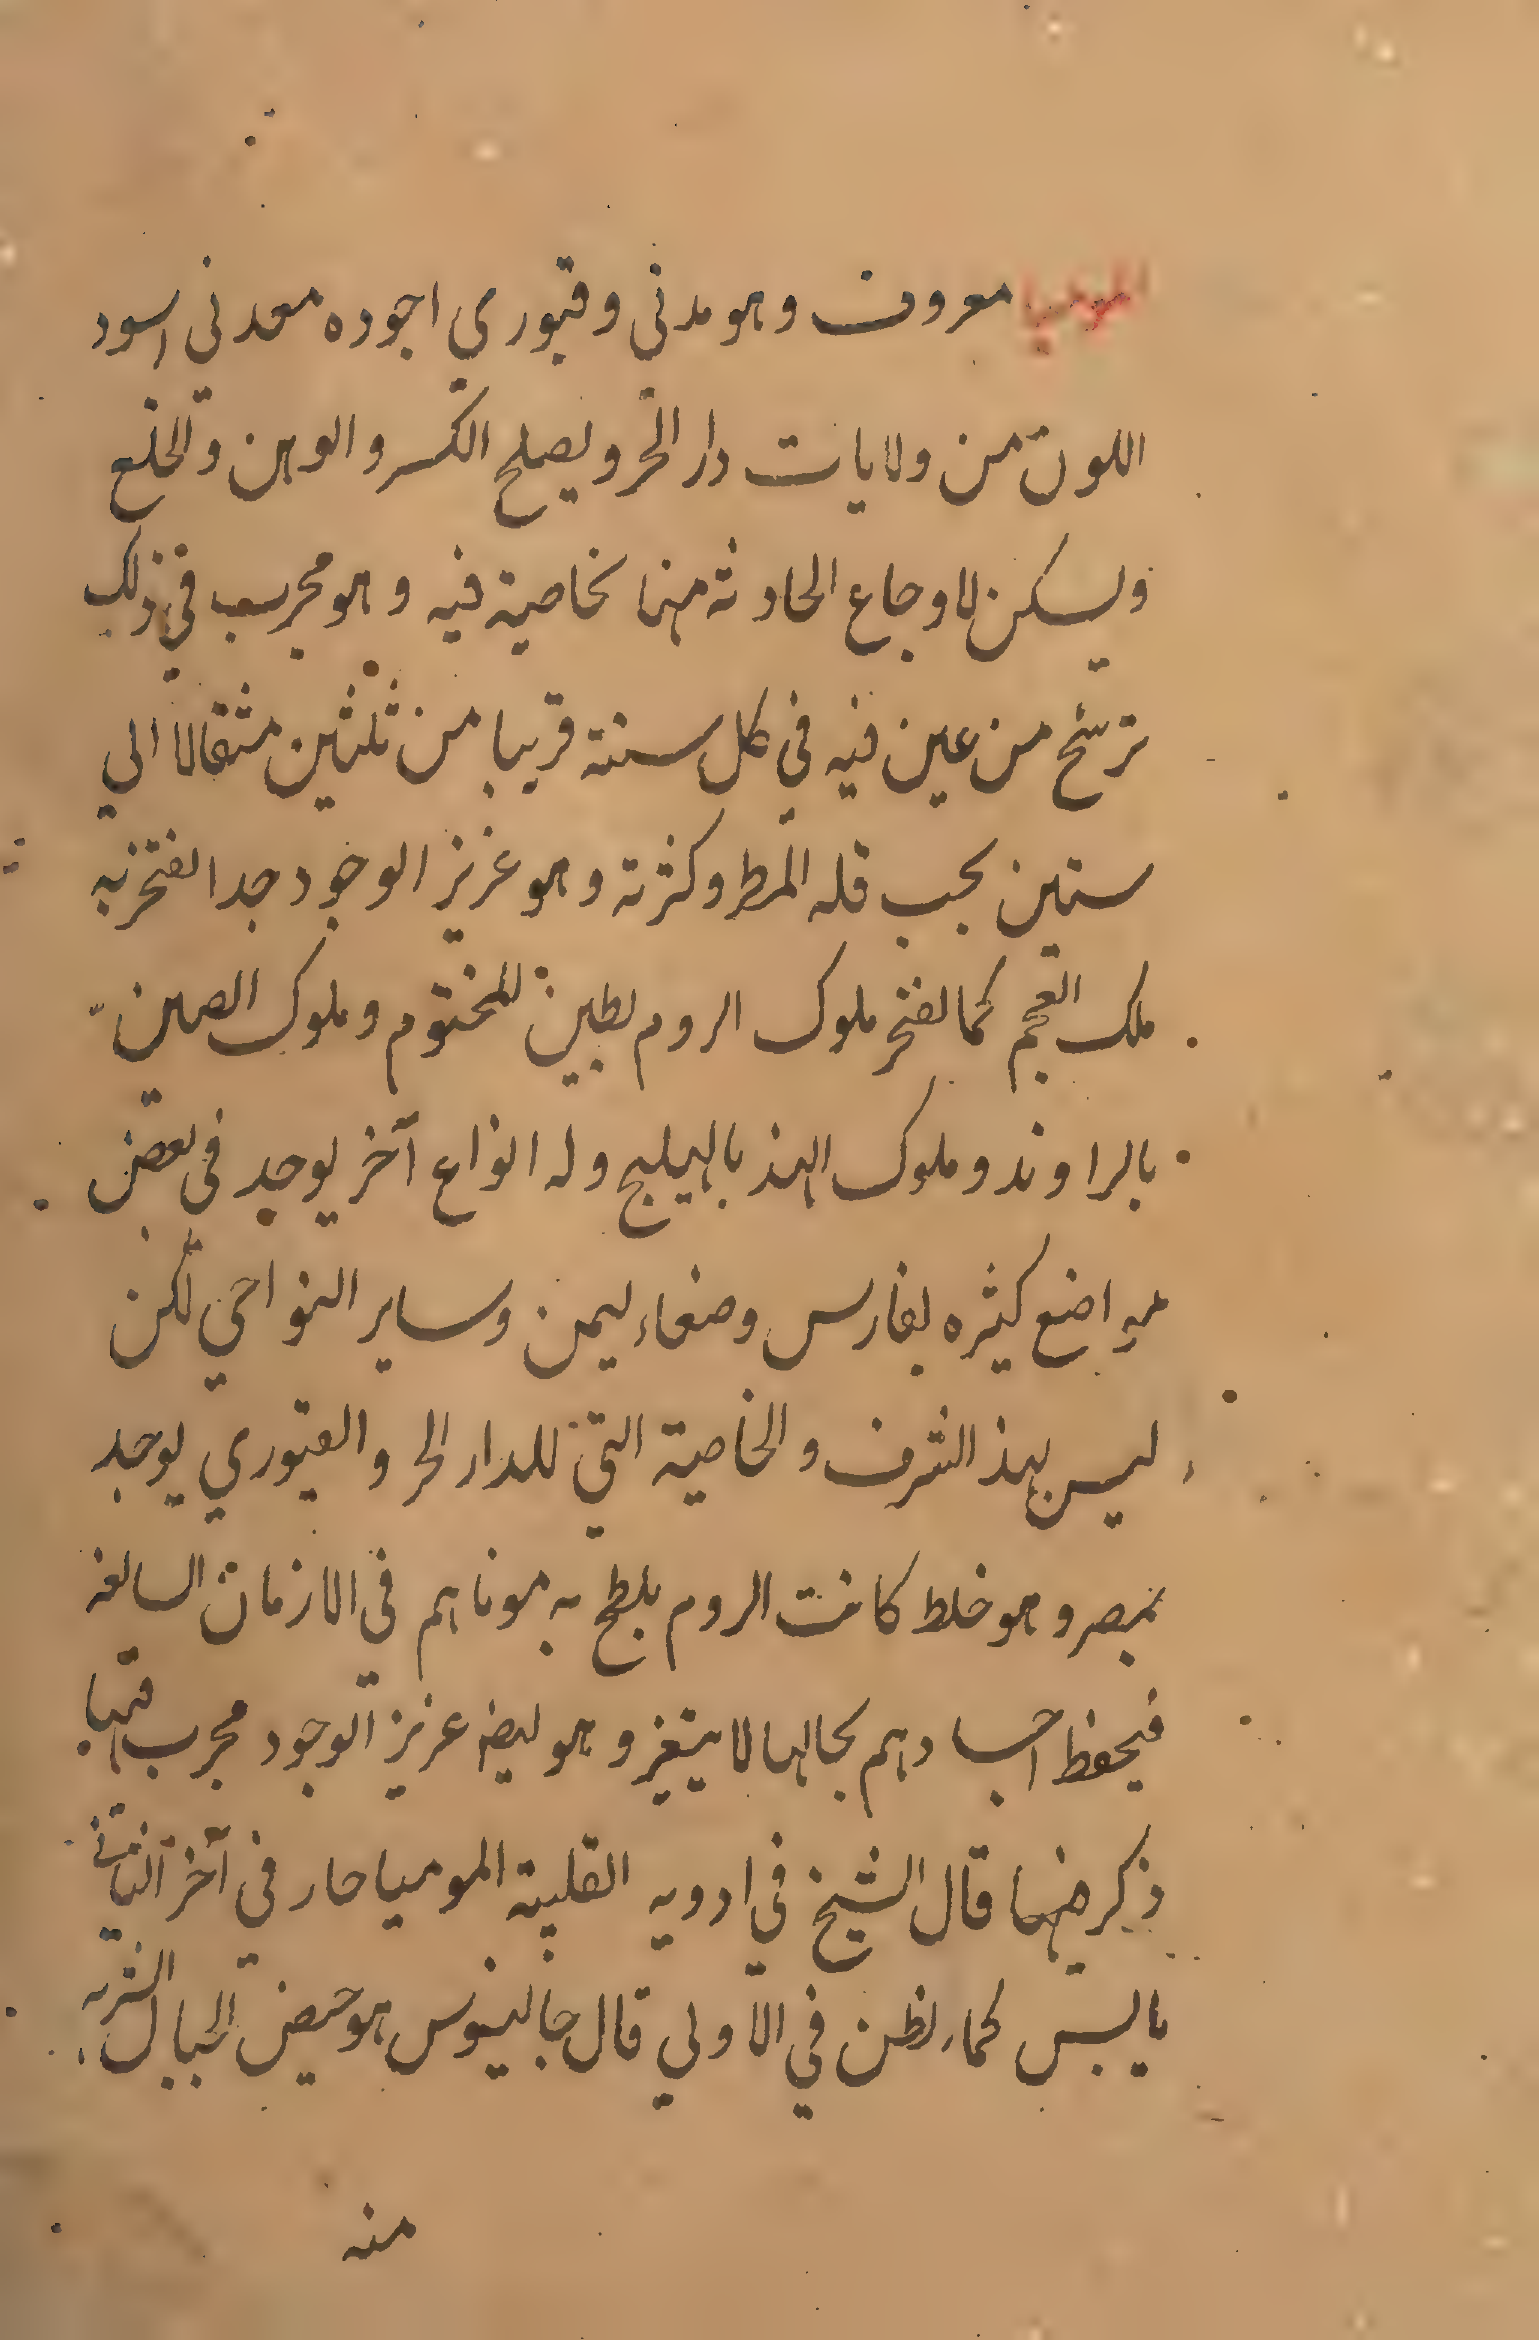 المومیا معروف وهو مدنی وقبوری اجوده معدنی اسود
اللون من ولایات دار الحر ویصلح الکسر والوهن والخلع
ویسکن لاوجاع الحادثه منها نخاصیة فیه وهو مجرب فی ذلک
ترشح من عین فیه فی کل سنة قریبا من ثلثین مثقالا الی
ستین بحب قله المطر وکثرته وهو عزیز الوجود جدا لفتخر به
ملک العجم کما لفتخر ملوک الروم بطین المختوم وملوک الصین
بالراوند وملوک الهند بالهیلیج وله انواع آخر یوجد فی بعض
مواضع کثیره بفارس وصنعاء لیمن وسایر النواحی لکن
لیس بهذ الشرف والخاصیة التی للدار الحر والقبوری یوجد
بمصر وهو خلط کانت الروم یلطح به موتاهم فی الازمان السالفه
فیحفظ اجسادهم بحالها لا یتغیر وهو لیضا عزیز الوجود مجرب فیما
ذکر منهما قال الشیخ فی ادویه القلبیة المومیا حار فی آخر الثانی
یابس کما نظن فی الاولی قال جالینوس هو حیض الجبال الشربه
منه